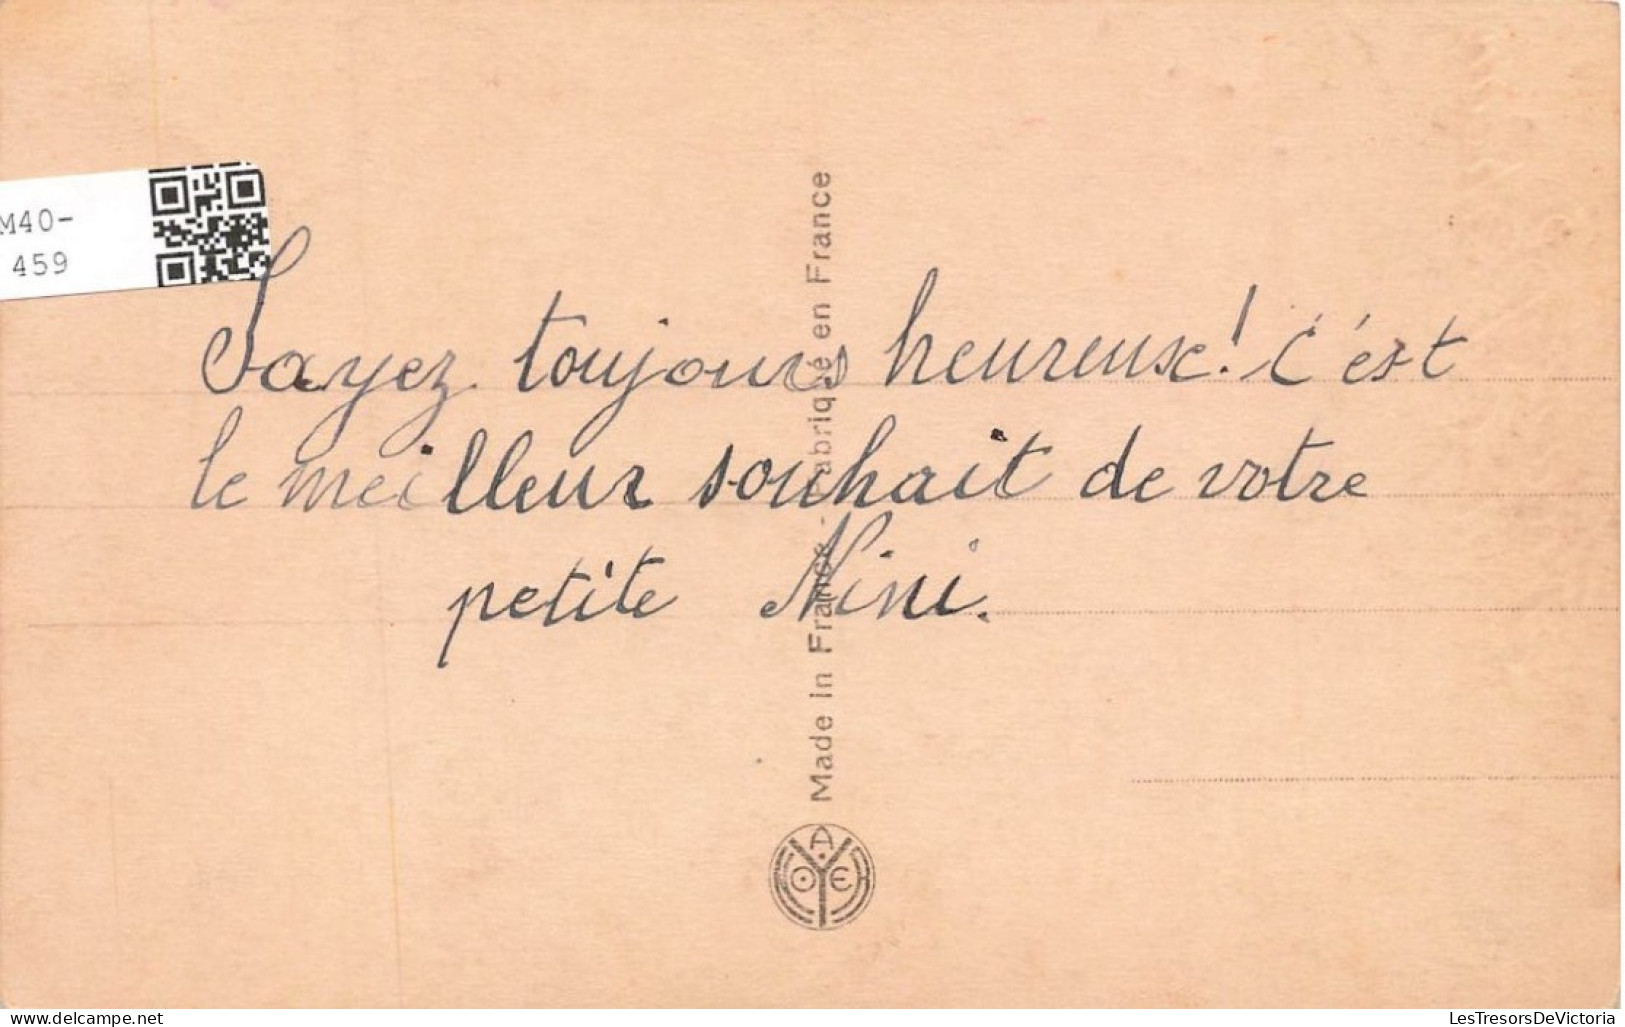 M40-
459
Sayez toujours heureuse! C'est
le meilleur souhait de votre
petite Nini.
Made in France - Fabriqué en France
delcampe.net
LesTresorsDeVictoria